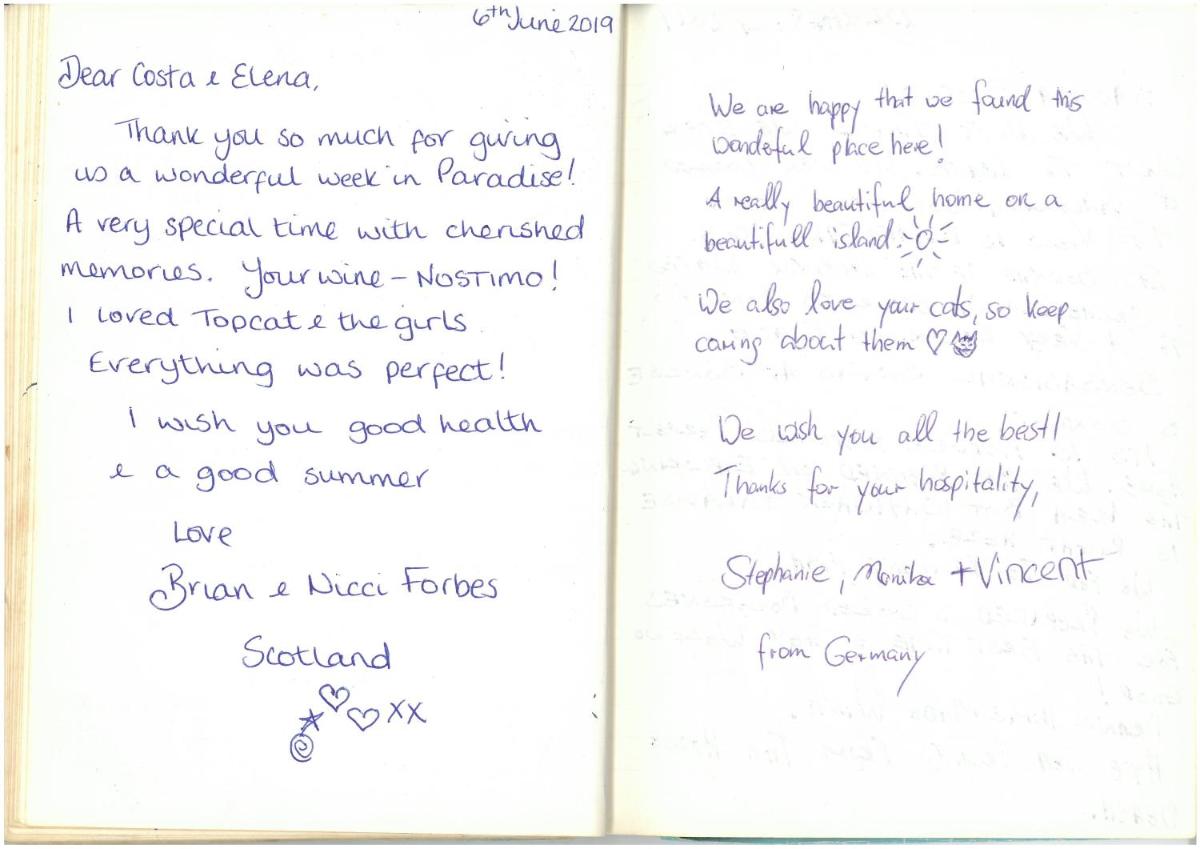 6th June 2019
Dear Costa & Elena,
Thank you so much for giving
us a wonderful week in Paradise!
A very special time with cherished
memories. Your wine – NOSTIMO!
I loved Topcat & the girls
Everything was perfect!
I wish you good health
& a good summer
Love
Brian & Nicci Forbes
Scotland
xx
We are happy that we found this
wondeful place here!
A really beautiful home on a
beautifull island.
We also love your cats, so keep
caring about them
We wish you all the best!
Thanks for your hospitality,
Stephanie, Monika + Vincent
from Germany